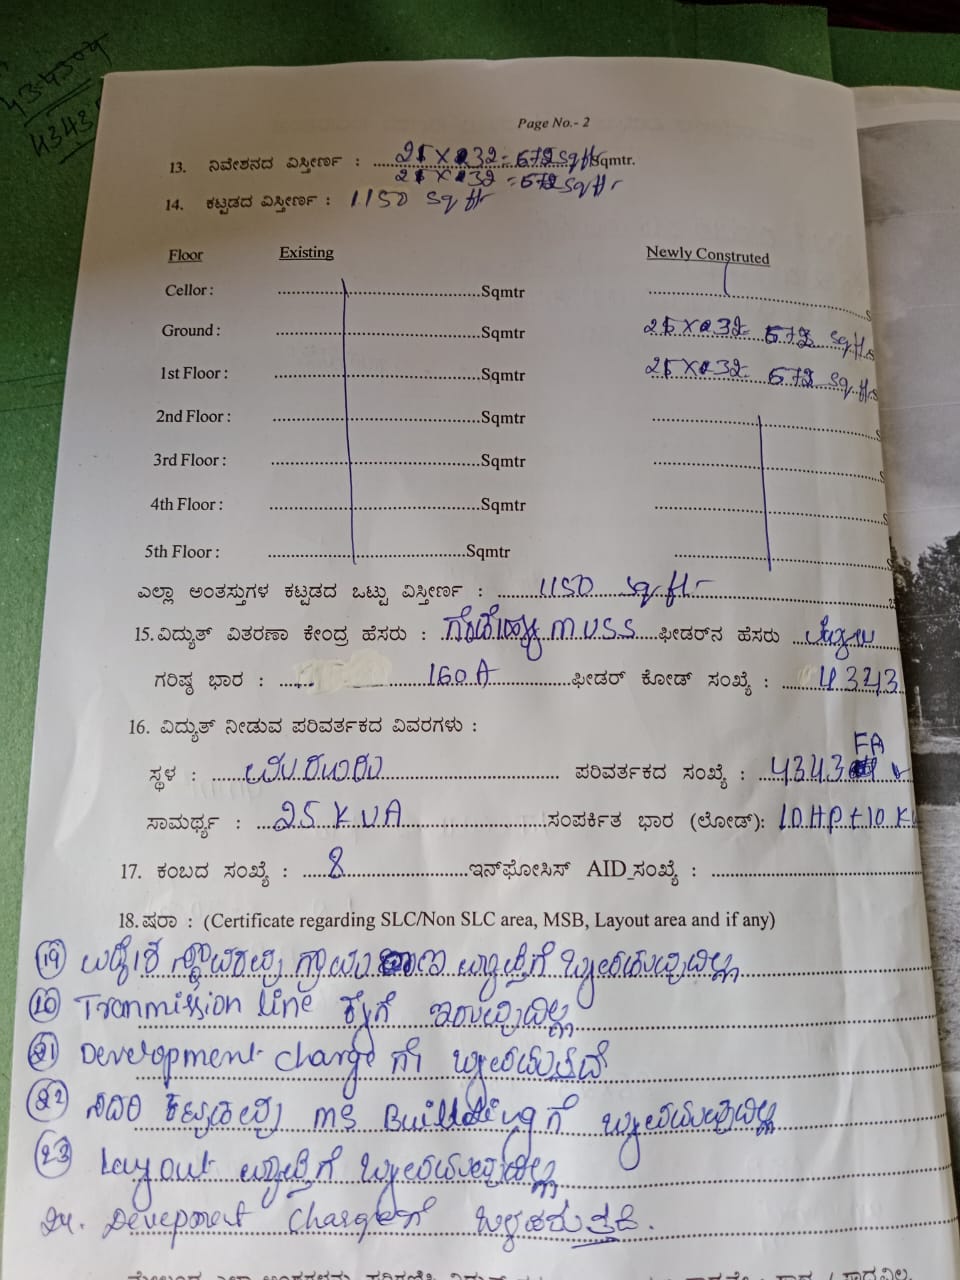 Page No.- 2
13. ನಿವೇಶನದ ವಿಸ್ತೀರ್ಣ : 21 X 32 = 672 Sq ft Sqmtr.
21 X 32 = 672 Sq ft
14. ಕಟ್ಟಡದ ವಿಸ್ತೀರ್ಣ : 1150 Sq ft
Floor Existing Newly Construted
Cellor : Sqmtr
Ground : Sqmtr 21 X 32 = 672 Sq.ft.
1st Floor : Sqmtr 21 X 32 = 672 Sq.ft.
2nd Floor : Sqmtr
3rd Floor : Sqmtr
4th Floor : Sqmtr
5th Floor : Sqmtr
ಎಲ್ಲಾ ಅಂತಸ್ತುಗಳ ಕಟ್ಟಡದ ಒಟ್ಟು ವಿಸ್ತೀರ್ಣ : 1150 Sq.ft
15. ವಿದ್ಯುತ್ ವಿತರಣಾ ಕೇಂದ್ರ ಹೆಸರು : MUSS ಫೀಡರ್‌ನ ಹೆಸರು
ಗರಿಷ್ಠ ಭಾರ : 160 A ಫೀಡರ್ ಕೋಡ್ ಸಂಖ್ಯೆ :
16. ವಿದ್ಯುತ್ ನೀಡುವ ಪರಿವರ್ತಕದ ವಿವರಗಳು :
FA
ಸ್ಥಳ : ಪರಿವರ್ತಕದ ಸಂಖ್ಯೆ : 4343
ಸಾಮರ್ಥ್ಯ : 25 KVA ಸಂಪರ್ಕಿತ ಭಾರ (ಲೋಡ್): 10 HP + 10 K
17. ಕಂಬದ ಸಂಖ್ಯೆ : 8 ಇನ್‌ಫೋಸಿಸ್ AID ಸಂಖ್ಯೆ :
18. ಷರಾ : (Certificate regarding SLC/Non SLC area, MSB, Layout area and if any)
19 ಉದ್ದೇಶಿತ ಸ್ಥಾವರವು ವ್ಯಾಪ್ತಿಗೆ ಒಳಪಡುವುದಿಲ್ಲ
Tranmission line ಕೆಳಗೆ ಇರುವುದಿಲ್ಲ
21 Development charge ಗೆ
22 ಸದರಿ ಕಟ್ಟಡವು MS Building ಗೆ ಒಳಪಡುವುದಿಲ್ಲ
23 Layout ವ್ಯಾಪ್ತಿಗೆ ಒಳಪಡುವುದಿಲ್ಲ
24. Devepment Charge ಗೆ ಒಳಪಡುತ್ತದೆ.